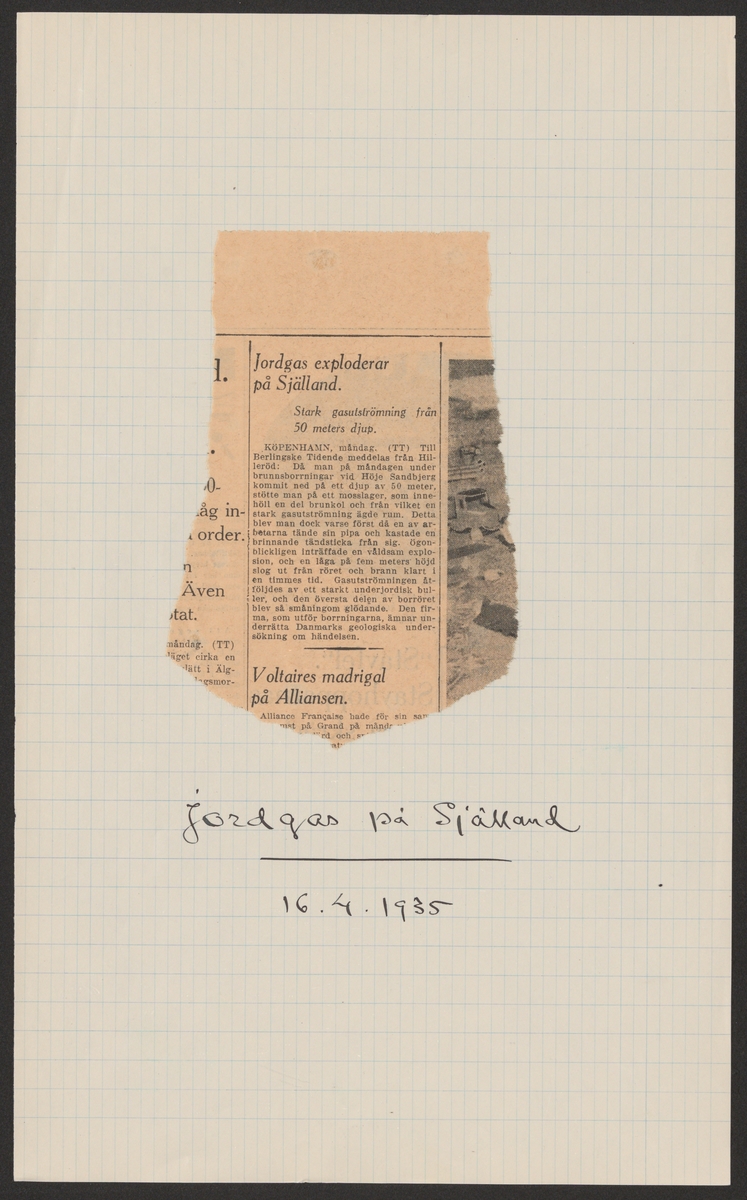 Jordgas exploderar
på Själland.
Stark gasutströmning från
50 meters djup.
KÖPENHAMN, måndag. (TT) Till
Berlingske Tidende meddelas från Hil-
leröd: Då man på måndagen under
brunnsborrningar vid Höje Sandbjerg
kommit ned på ett djup av 50 meter,
stötte man på ett mosslager, som inne-
höll en del brunkol och från vilket en
stark gasutströmning ägde rum. Detta
blev man dock varse först då en av ar-
betarna tände sin pipa och kastade en
brinnande tändsticka från sig. Ögon-
blickligen inträffade en våldsam explo-
sion, och en låga på fem meters höjd
slog ut från röret och brann klart i
en timmes tid. Gasutströmningen åt-
följdes av ett starkt underjordisk bul-
ler, och den översta delen av borröret
blev så småningom glödande. Den fir-
ma, som utför borrningarna, ämnar un-
derrätta Danmarks geologiska under-
sökning om händelsen.
Voltaires madrigal
på Alliansen.
Alliance Française hade för sin
på Grand på
och
d.
0-
åg in-
order.
n
Även
tat.
måndag. (TT)
läget cirka en
i Älg-
jordgas på Själland
16.4.1935